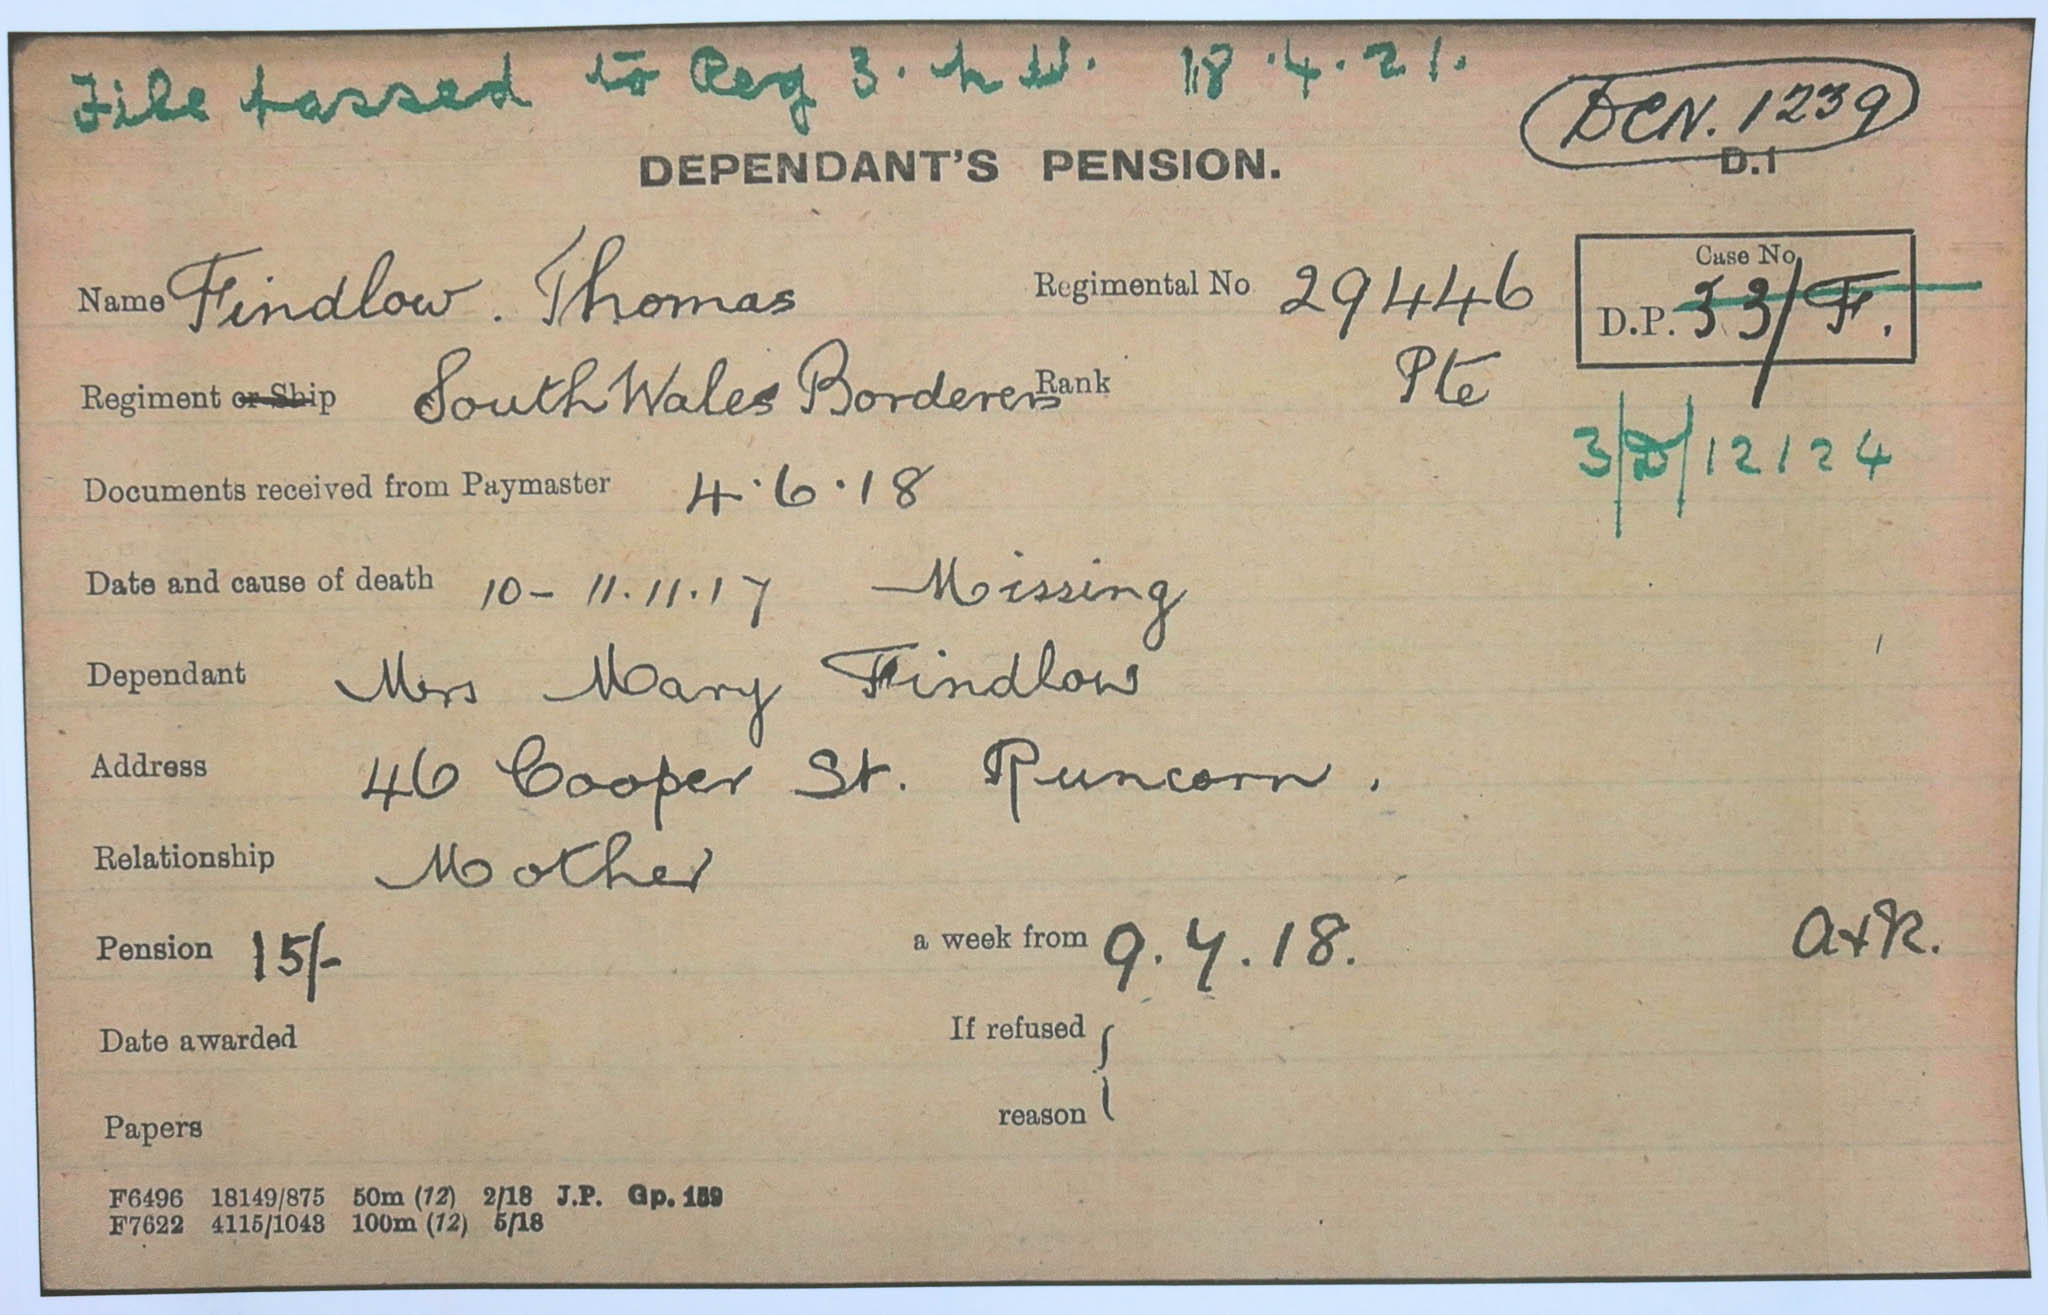 File passed to Reg 3. N.W. 18.4.21.
DCN. 1239
DEPENDANT'S PENSION.
D.1
Name Findlow. Thomas Regimental No 29446
Case No
D.P. 53/F.
Regiment or Ship South Wales Borderers Rank Pte
3/D/12124
Documents received from Paymaster 4.6.18
Date and cause of death 10-11.11.17 Missing
Dependant Mrs Mary Findlow
Address 46 Cooper St. Runcorn.
Relationship Mother
Pension 15/- a week from 9.7.18.
Date awarded If refused
Papers reason
F6496 18149/875 50m (12) 2/18 J.P. Gp. 159
F7622 4115/1043 100m (12) 5/18